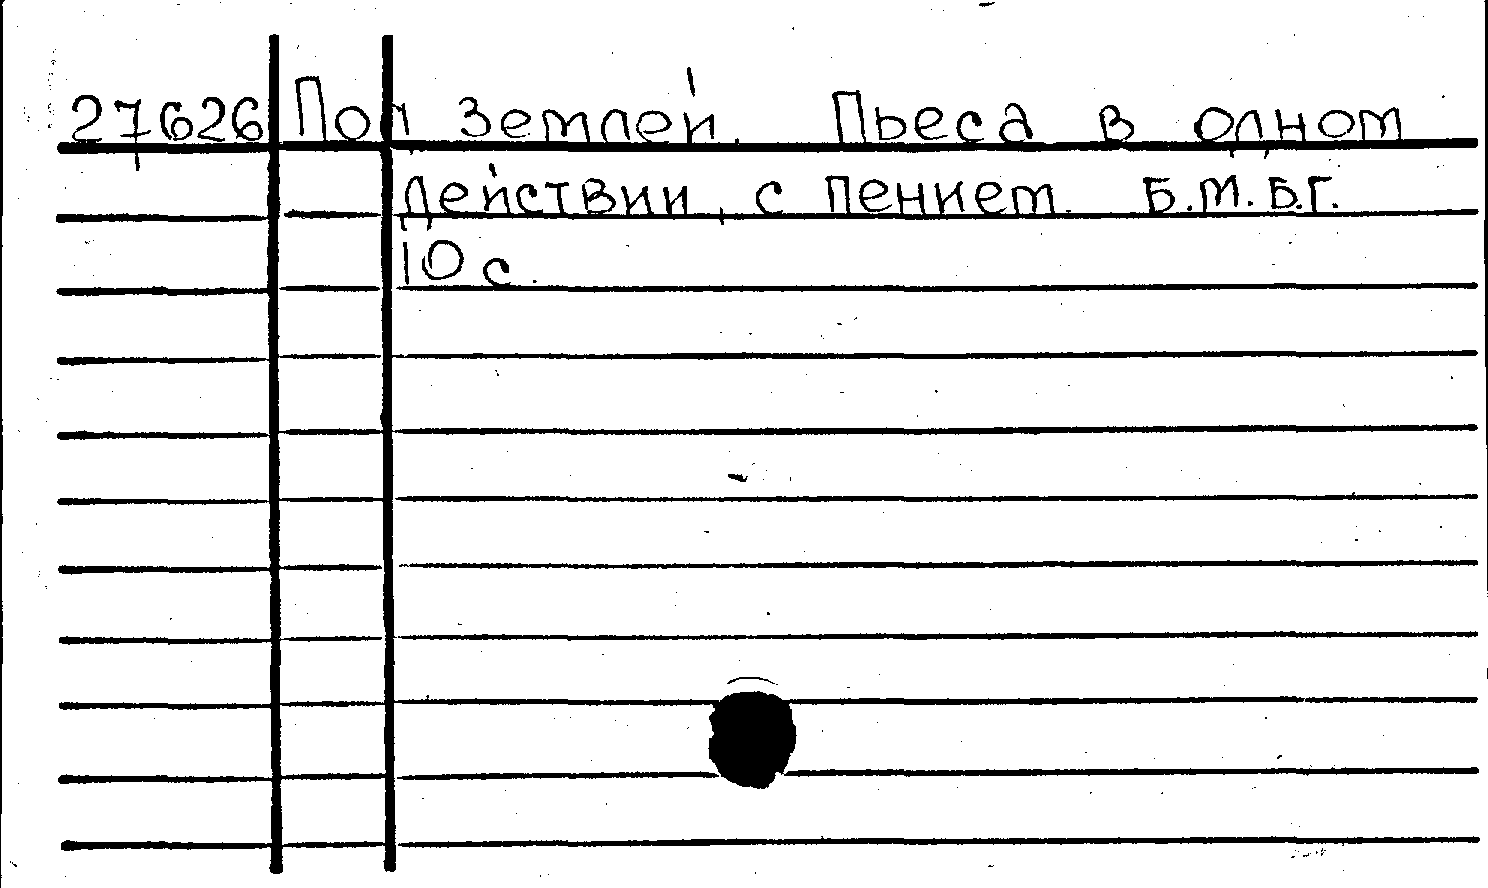 27626 Под землей. Пьеса в одном
действии, с пением. Б.М. Б.Г.
10 с.